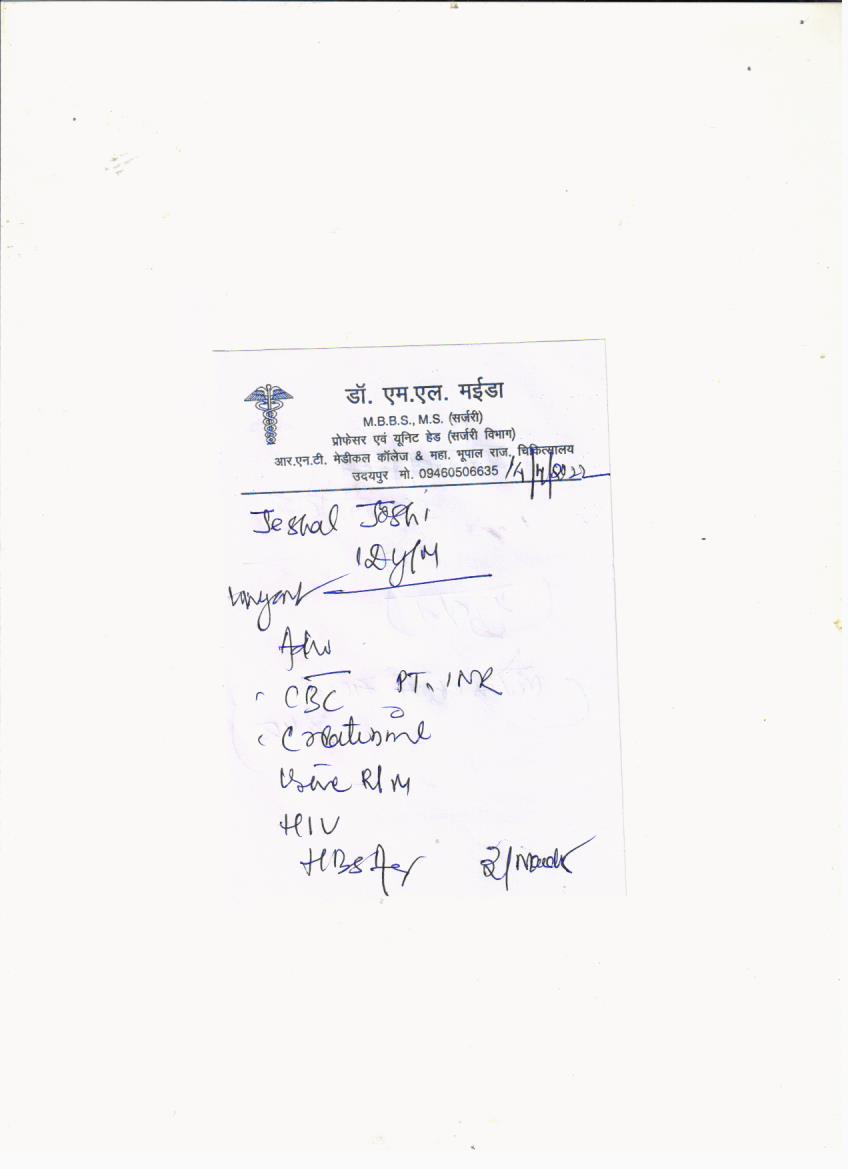 डॉ. एम.एल. मईडा
M.B.B.S., M.S. (सर्जरी)
प्रोफेसर एवं यूनिट हेड (सर्जरी विभाग)
आर.एन.टी. मेडीकल कॉलेज & महा. भूपाल राज. चिकित्सालय
उदयपुर मो. 09460506635 14/7/2022
Jeshal Joshi
Urgent
Adv
CBC PT, INR
Creatinine
Urine R/M
HIV
HBsAg